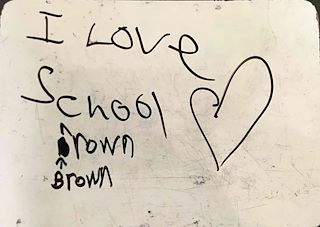 I LOVe
School
Brown
Brown